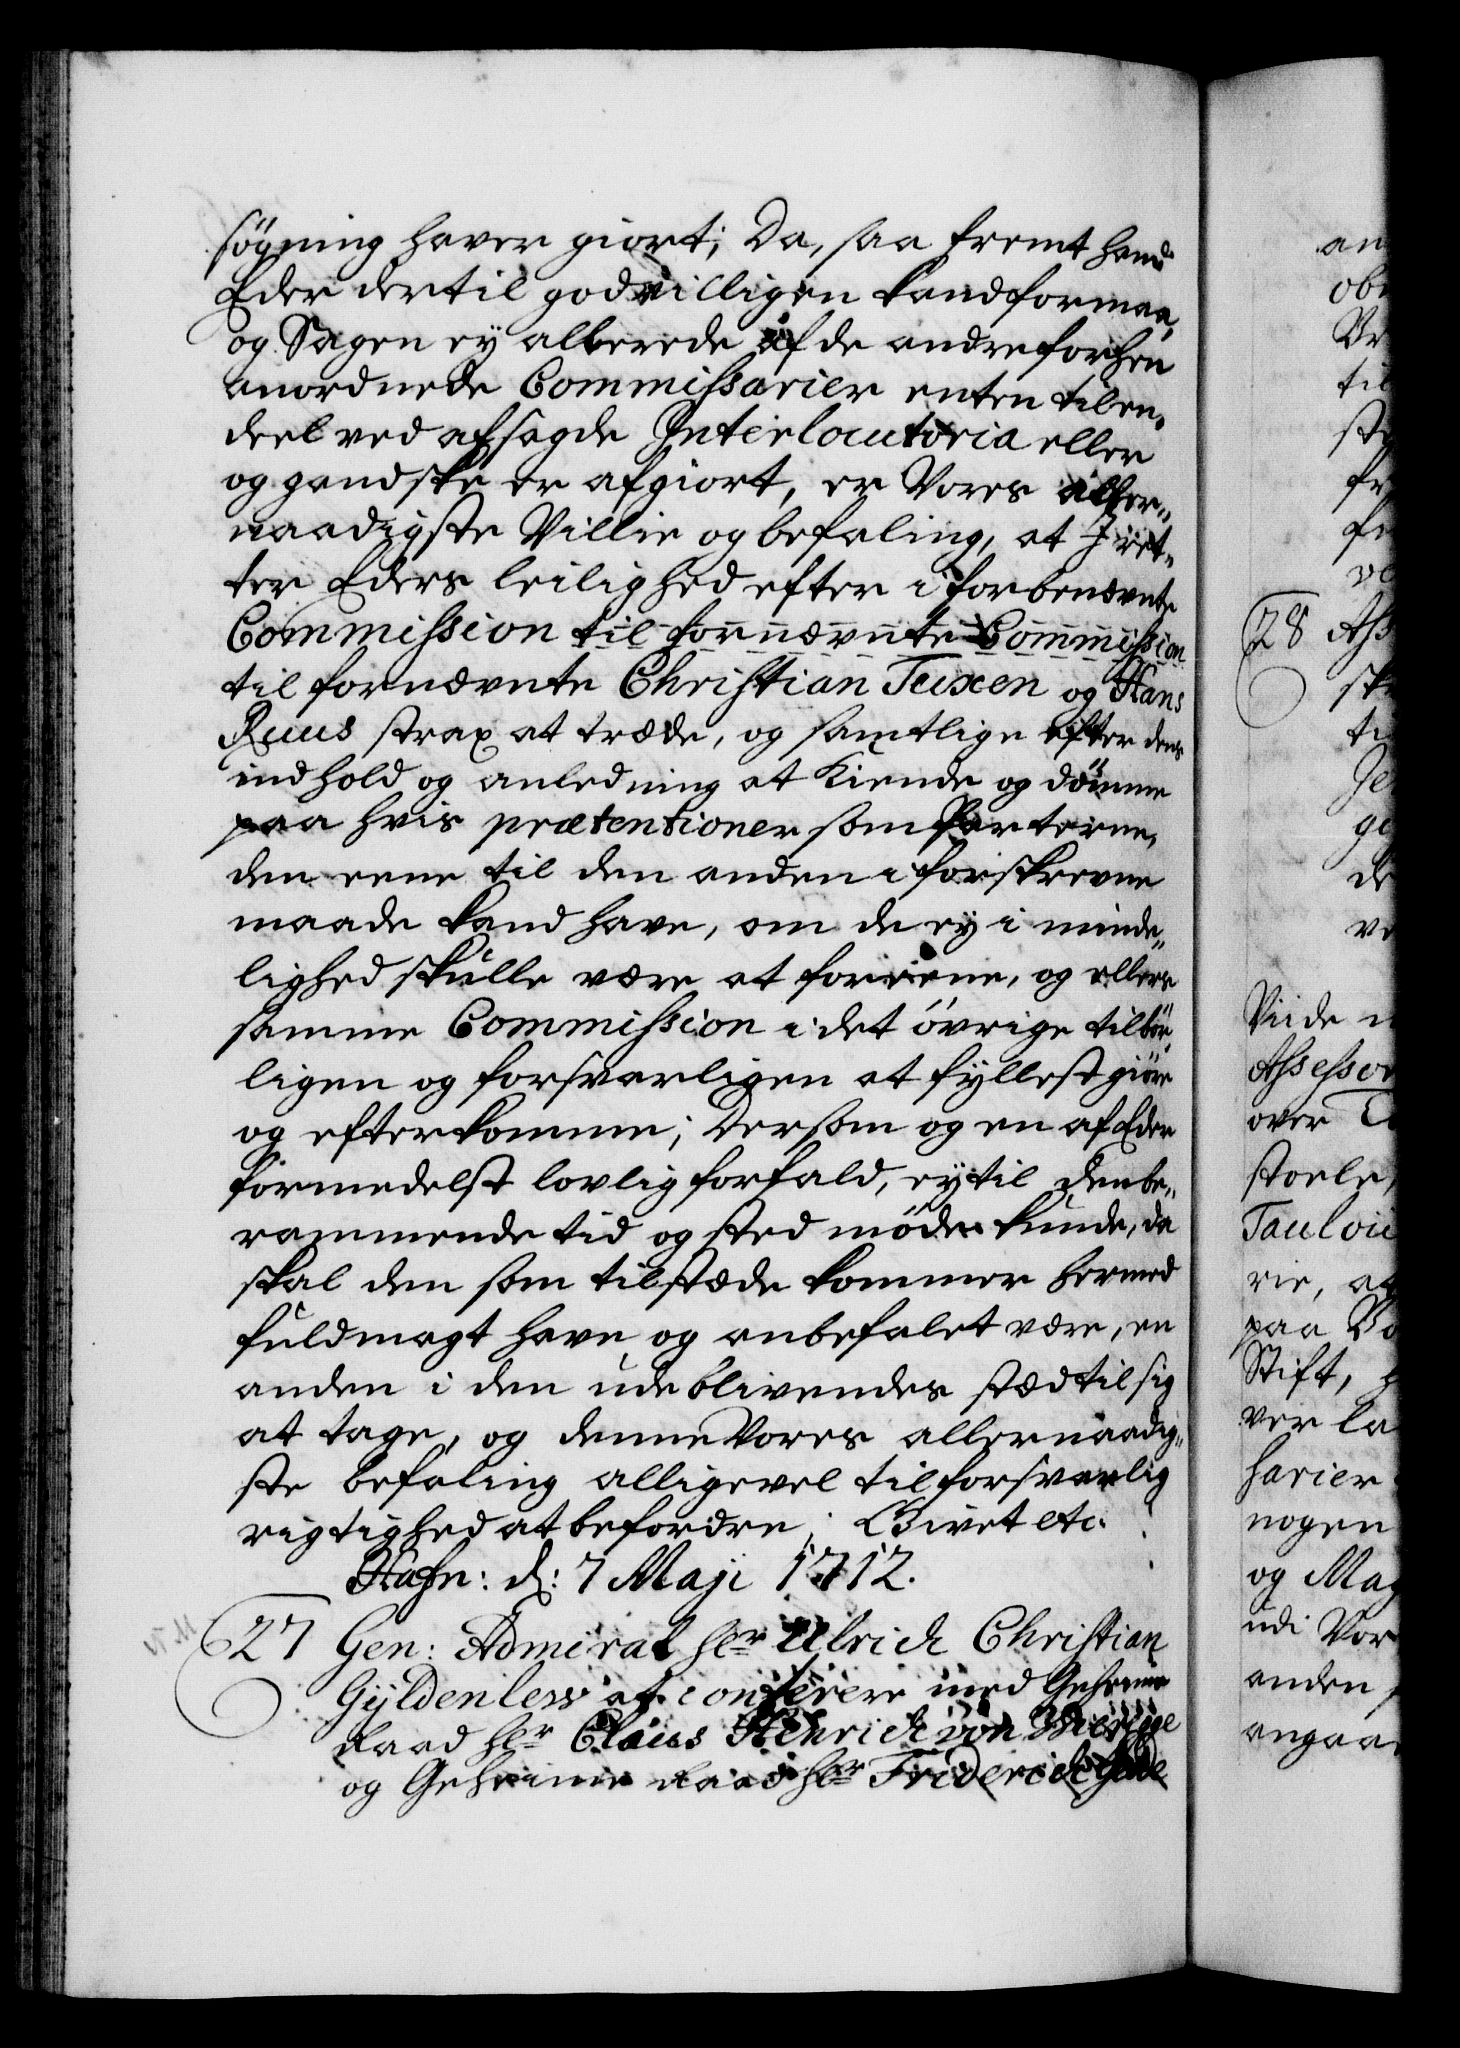 søgning haver giort; Da, saa fremt hand
Eder dertil godvilligen kand formaa,
og Sagen ey allerede af de andre forhen
anordnede Commissarier enten tilen„
deel ved afsagde Interlocutoria eller
og gandske er afgiort, er Vores aller„
naadigste Villie og befaling, at I ret„
ter Eders leilighed efter i forbenævnte
Commission til fornævnte Commission
til fornævnte Christian Tuxen og Hans
Ruus strax at træde, og samtlige efter dens
indhold og anledning at Kiende og dømme
paa hvis prætentioner som Parterne,
den eene til den anden i forskrevne
maade kand have, om de ey i minde„
lighed skulle være at foreene, og ellers
samme Commission i det øvrige tilbør„
ligen og forsvarligen at fyllestgiøre
og efterkomme; Dersom og en af Eder
formedelst lovlig forfald, ey til den be„
rammende tid og sted møde kunde, da
skal den som tilstæde kommer hermed
fuldmagt have og anbefalet være, en
anden i den udeblivendes stæd til sig
at tage, og denne Vores allernaadig„
ste befaling alligevel til forsvarlig
rigtighed at befordre; Givet etc:
Hafn: d: 7 Maji 1712.
27 Gen: Admiral hr Ulrich Christian
Gyldenlew at conferere med Geheime
Raad hr Claus Henrich von
og Geheime Raad hr Friderich
an
obe
Vr
til
28 Ass
ti
ge
de
ve
Viide
Assessor
over
stoele,
Taulov
rie, at
paa Vo
Stift,
ver la
sarier
nogen
og Mag
udi Vor
anden
angaa